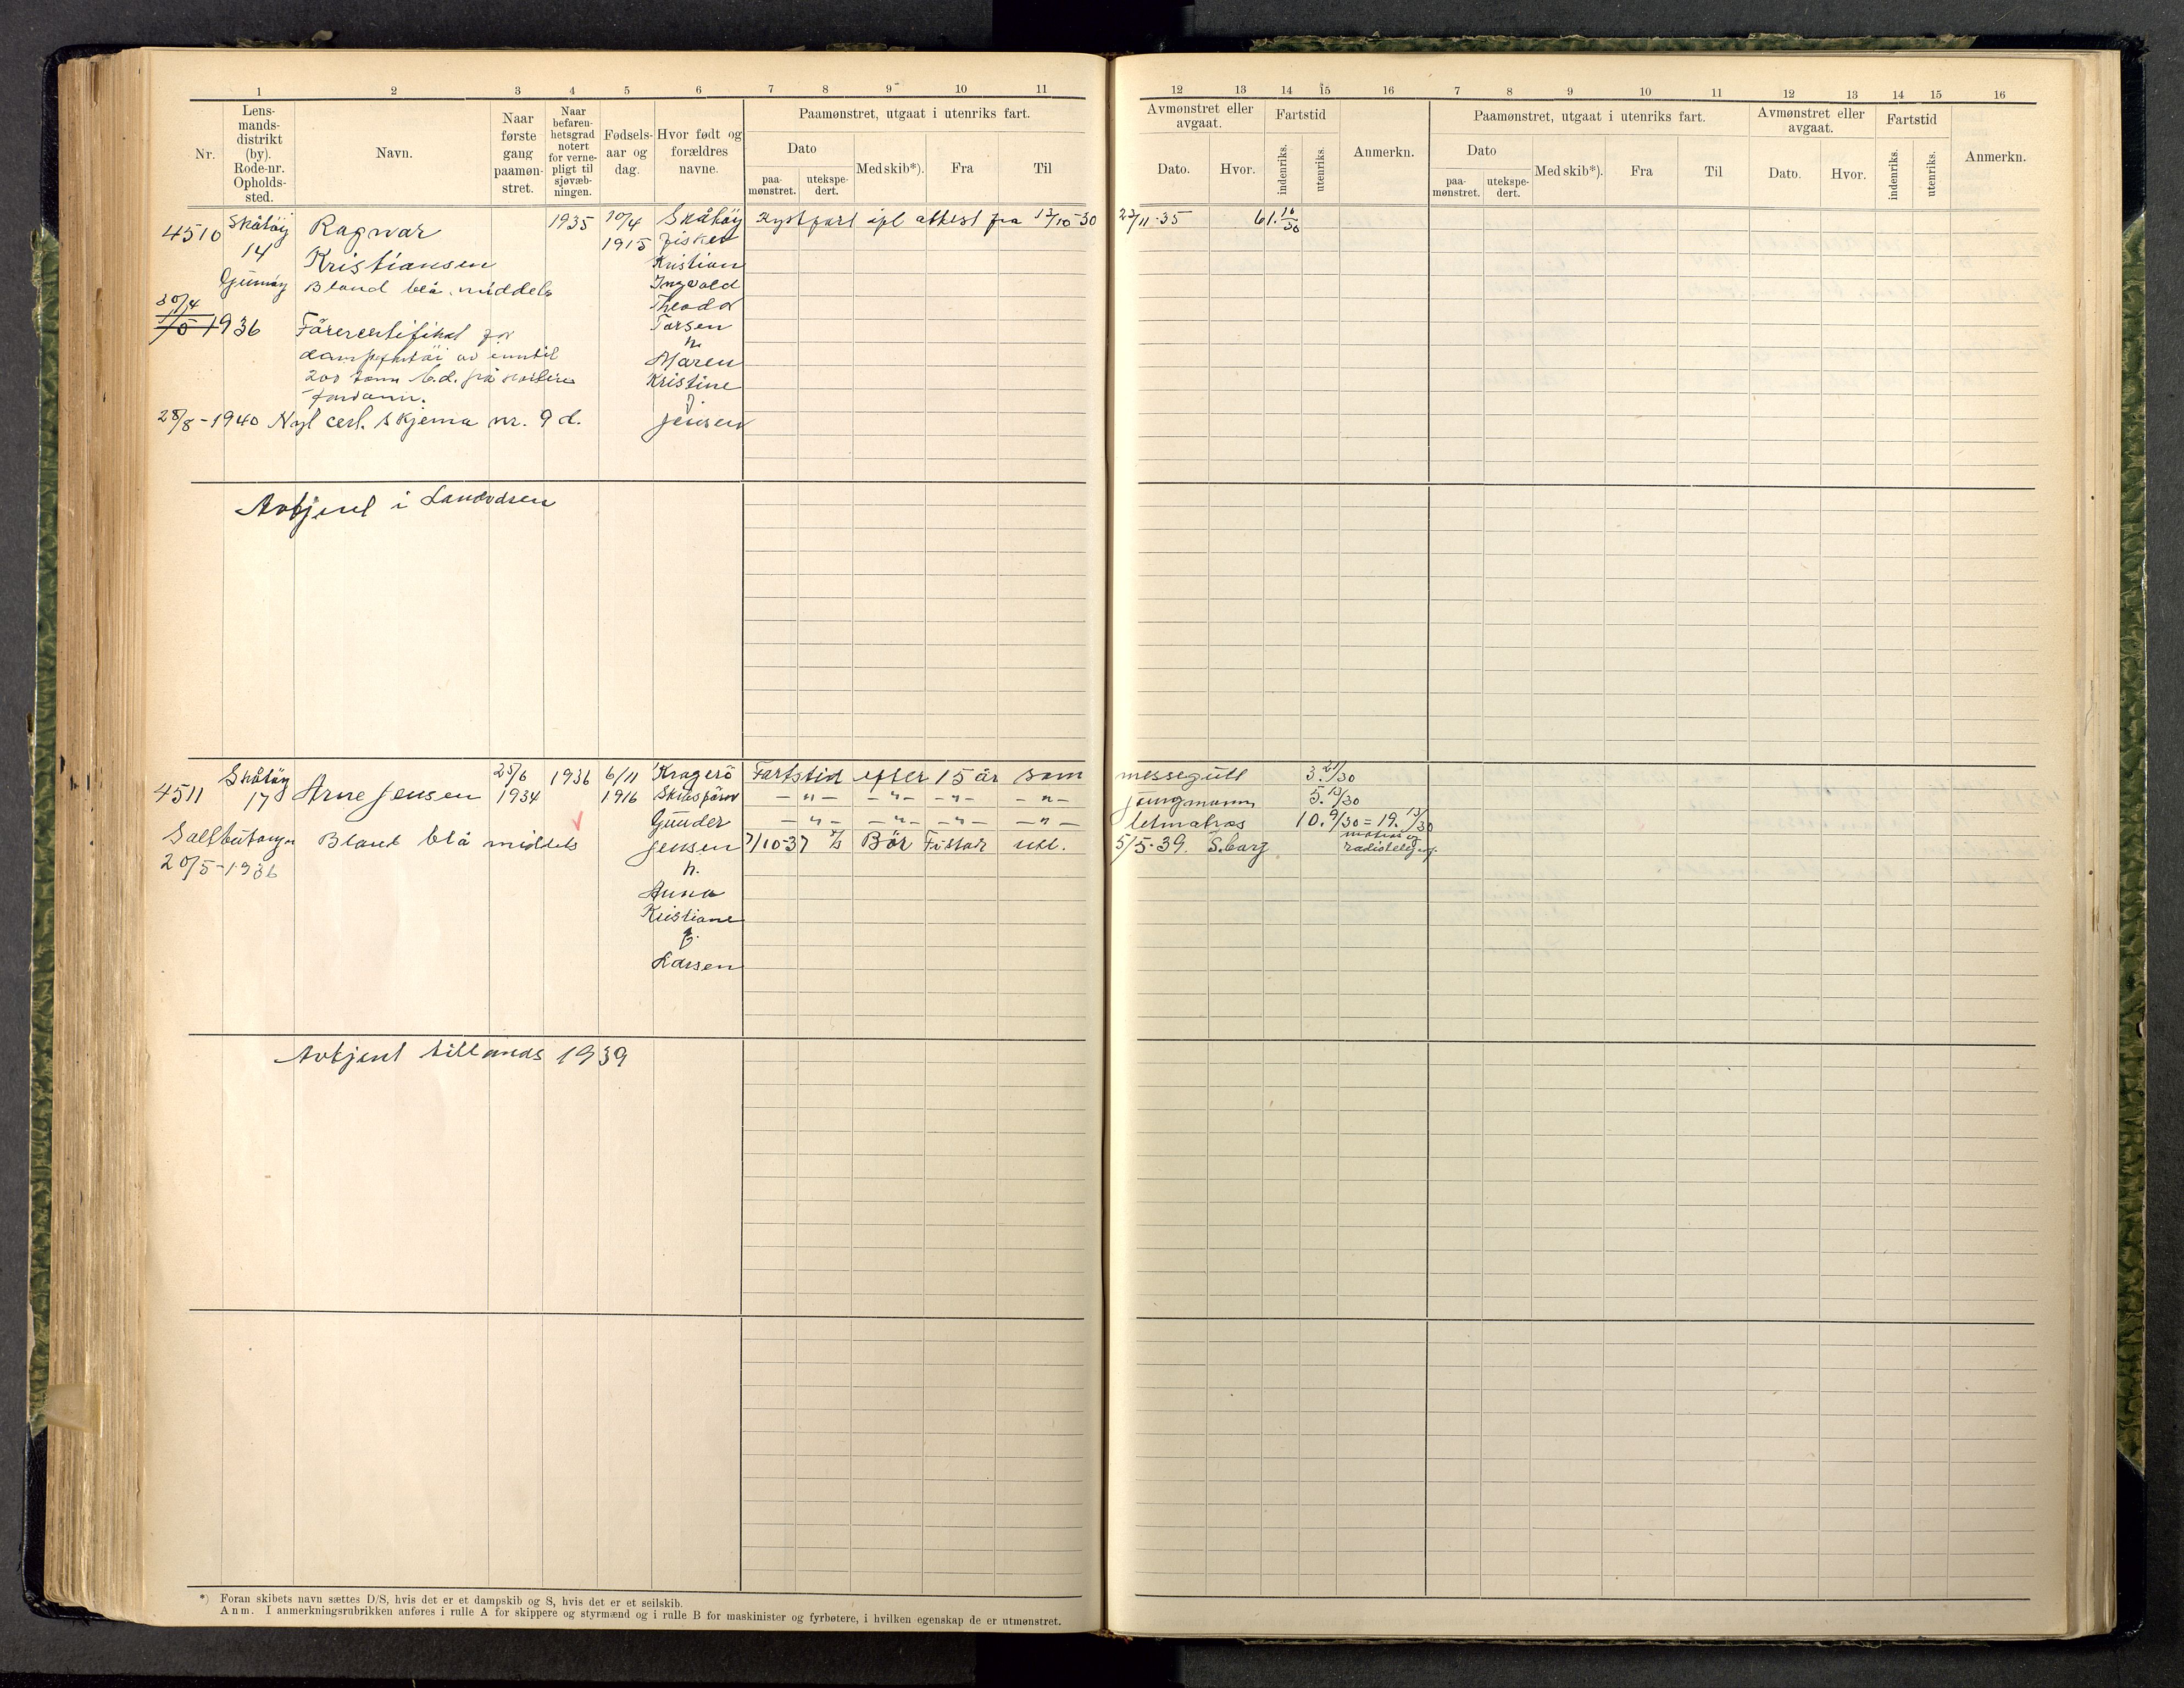 1 2 3 4 5 6 7 8 9 10 11
Nr.
Lens-
mands-
distrikt
(by).
Rode-nr.
Opholds-
sted.
Navn.
Naar
første
gang
paamøn-
stret.
Naar
befaren-
hetsgrad
notert
for verne-
pligt til
sjøvæb-
ningen.
Fødsels-
aar og
dag.
Hvor født og
forældres
navne.
Paamønstret, utgaat i utenriks fart.
Dato
paa-
mønstret.
utekspe-
dert.
Med skib*).
Fra
Til
12 13 14 15 16
Avmønstret eller
avgaat.
Dato.
Hvor.
Fartstid
indenriks.
utenriks.
Anmerkn.
7 8 9 10 11 12 13 14 15 16
Paamønstret, utgaat i utenriks fart.
Dato
paa-
mønstret.
utekspe-
dert.
Med skib*).
Fra
Til
Avmønstret eller
avgaat.
Dato.
Hvor.
Fartstid
indenriks.
utenriks.
Anmerkn.
4510
Skåtøy
14
Ragnar
Kristiansen
Bland blå. middels
1935
10/4
1915
Skåtøy
fisker
Kristian
Ingvald
Theodor
Tarsen
h.
Maren
Kristine
f.
Jensen
Kystfart ifl attest fra 17/10-30
27/11-35
61. 16/30
30/4
1936
Førercertifikat for
200 tonn
28/8-1940 Nyt cert. skjema nr. 9 d.
Avtjent i Landvdsen
4511
Skåtøy
17
Arne Jensen
25/6
1934
1936
6/11
1916
Kragerø
Gunder
Jensen
h.
Anna
Kristiane
f.
Larsen
Bland blå middels
20/5-1936
Fartstid efter 15 år som messegutt 3. 21/30
— " — — " — — " — — " — jungmann 5. 13/30
— " — — " — — " — — " — letmatros 10. 9/30 = 19. 13/30
7/10-37 Bør utl. 5/5-39. S.barg
Avtjent tillands 1939
*) Foran skibets navn sættes D/S, hvis det er et dampskib og S, hvis det er et seilskib.
Anm. I anmerkningsrubrikken anføres i rulle A for skippere og styrmænd og i rulle B for maskinister og fyrbøtere, i hvilken egenskap de er utmønstret.